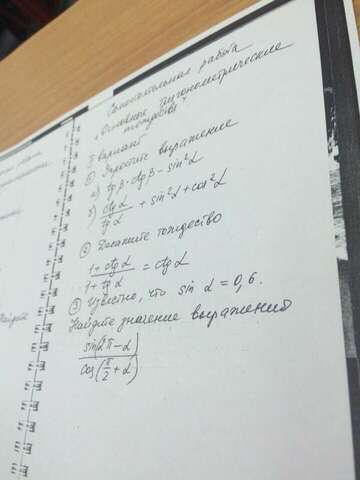 Самостоятельная работа
"Основные тригонометрические
тождества"
I вариант
① Упростите выражение
а) tg β · ctg β − sin² α
б) ctg α / tg α + sin² α + cos² α
② Докажите тождество
1 + ctg α / 1 + tg α = ctg α
③ Известно, что sin α = 0,6.
Найдите значение выражения
sin(2π − α)
cos(π/2 + α)